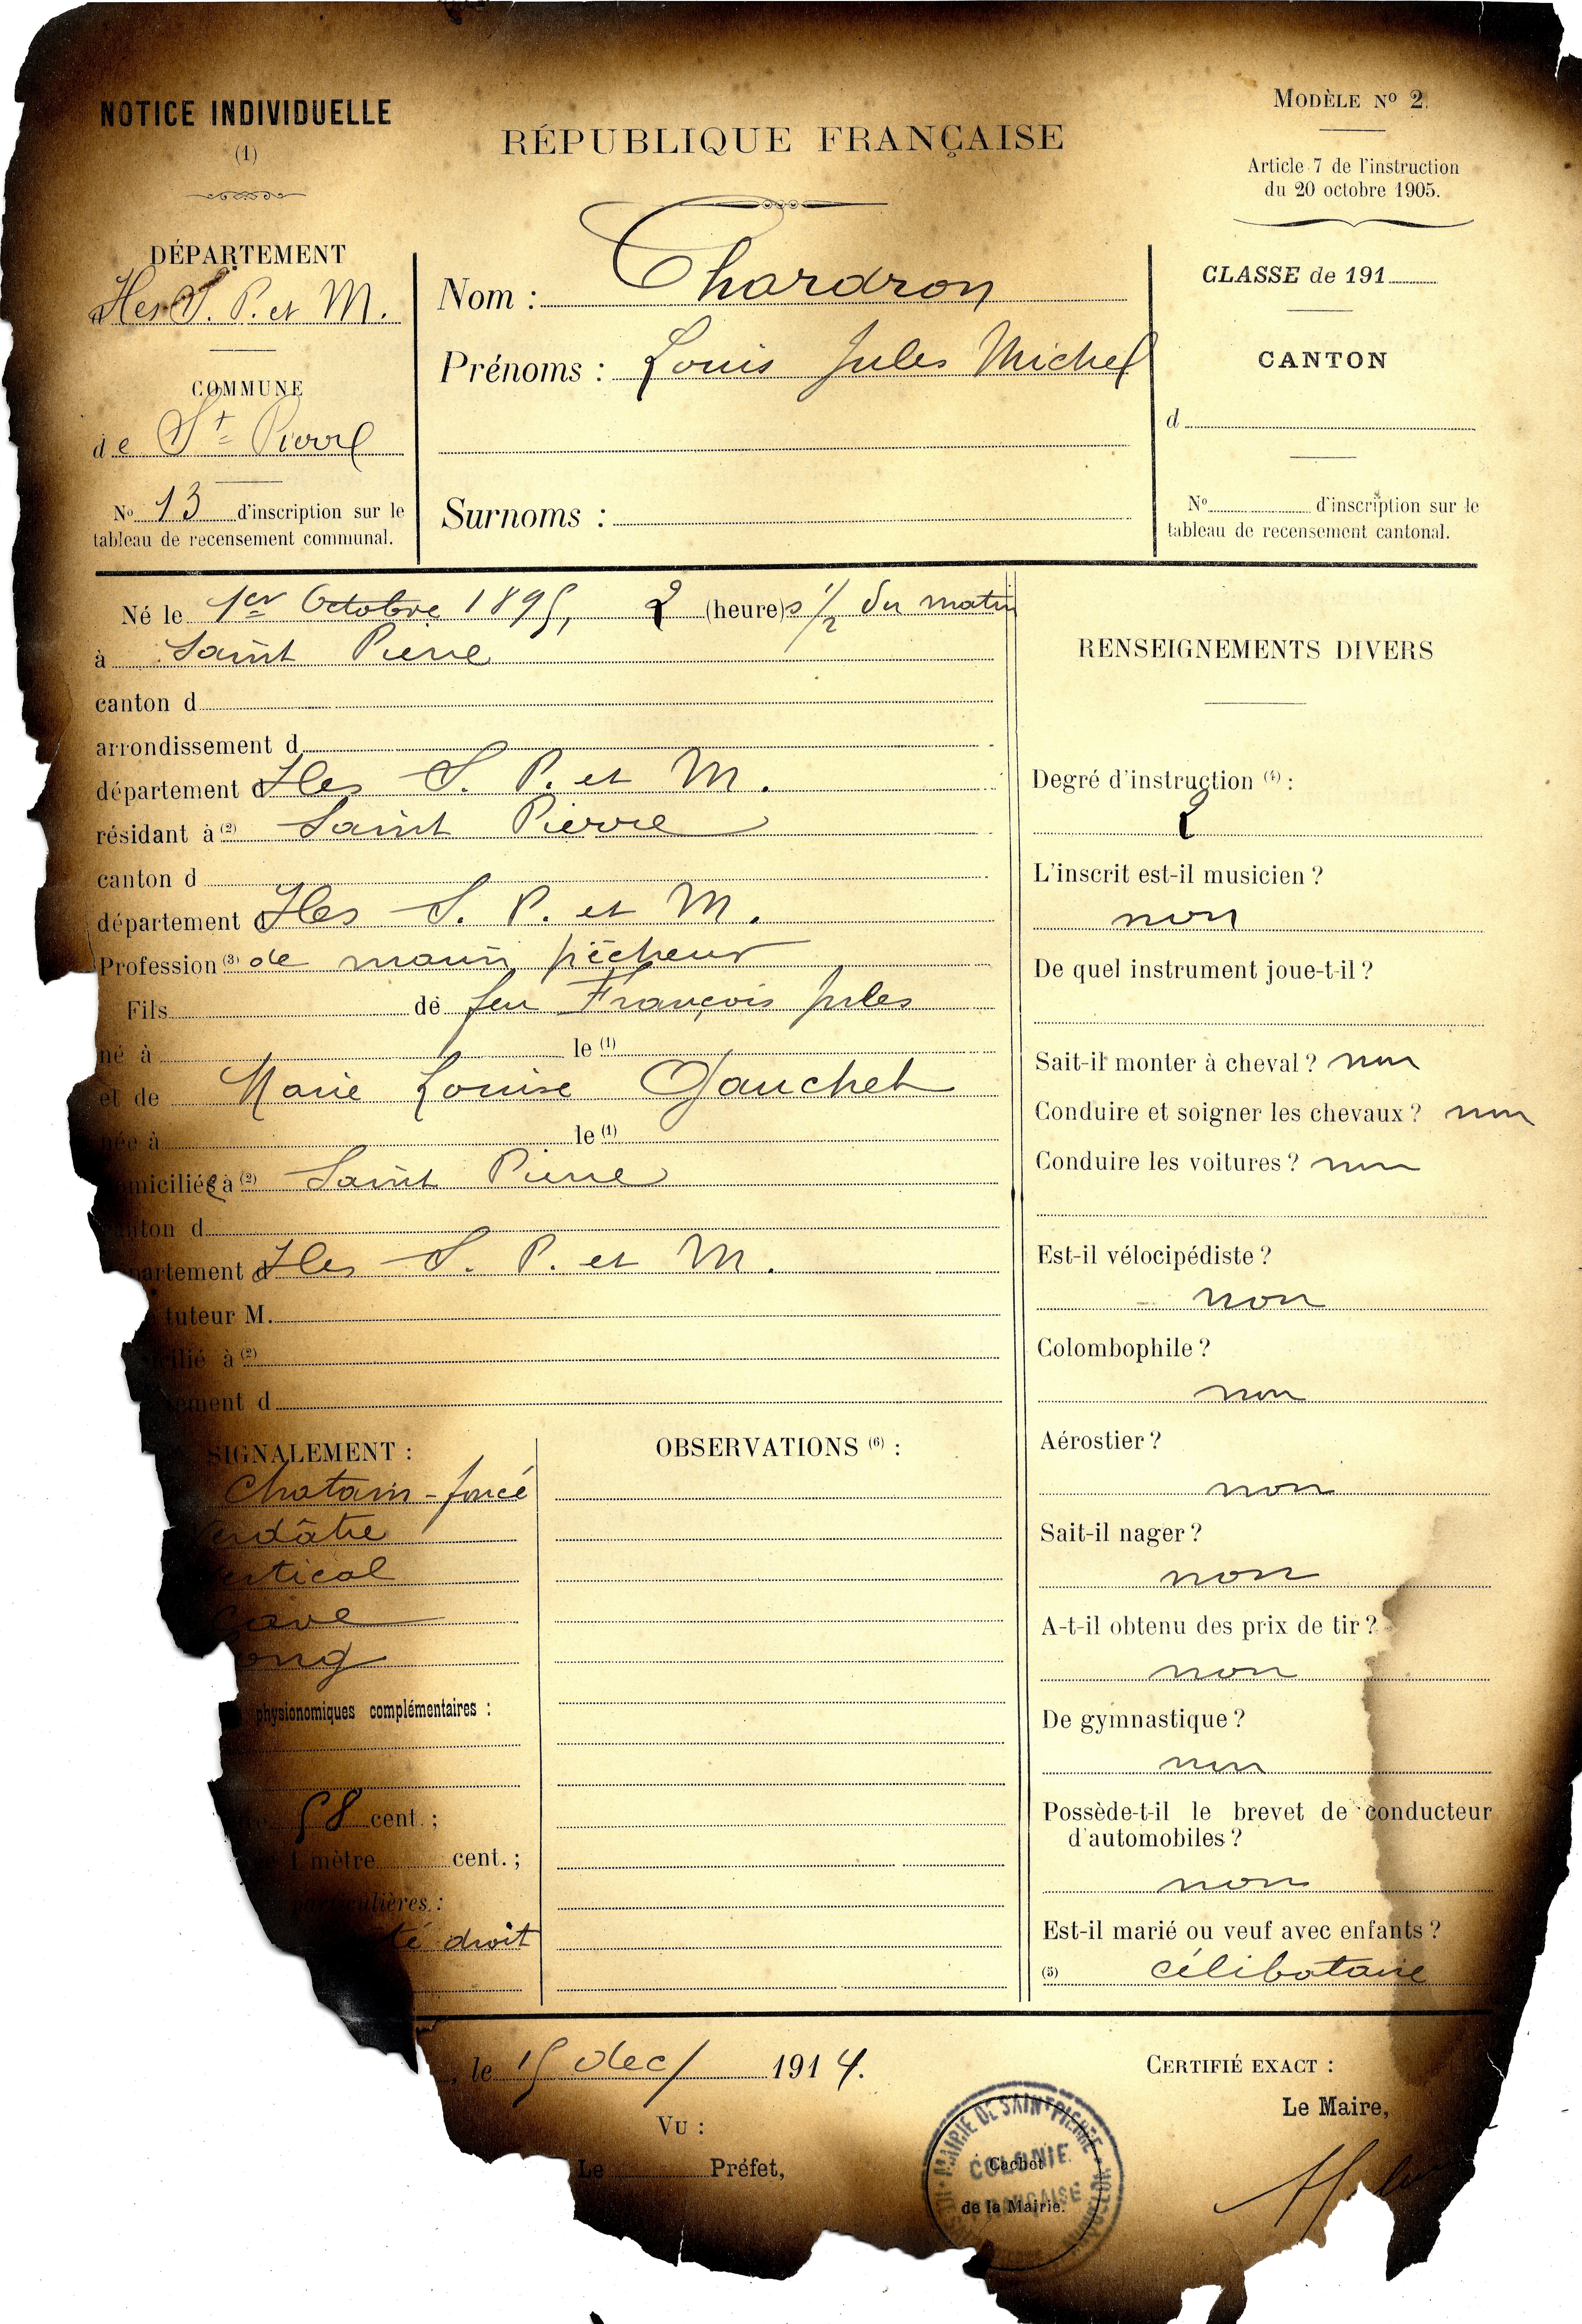 NOTICE INDIVIDUELLE
(1)
RÉPUBLIQUE FRANÇAISE
MODÈLE Nº 2.
Article 7 de l'instruction
du 20 octobre 1905.
DÉPARTEMENT
Iles S. P. et M.
COMMUNE
de St Pierre
Nº 13 d'inscription sur le
tableau de recensement communal.
Nom : Chardron
Prénoms : Louis Jules Michel
Surnoms :
CLASSE de 191
CANTON
d
Nº d'inscription sur le
tableau de recensement cantonal.
Né le 1er Octobre 1895, 2 (heure)s 1/2 du matin
à Saint Pierre
canton d
arrondissement d
département d Iles S. P. et M.
résidant à (2) Saint Pierre
canton d
département d Iles S. P. et M.
Profession (3) de marin pêcheur
Fils de feu François Jules
né à le (1)
et de Marie Louise Gauchet
née à le (1)
miciliée à (2) Saint Pierre
anton d
partement d Iles S. P. et M.
tuteur M.
cilié à (2)
tement d
SIGNALEMENT :
Chatain-foncé
Verdâtre
ertical
Cave
ong
physionomiques complémentaires :
58 cent. ;
1 mètre cent. ;
particulières :
té droit
OBSERVATIONS (6) :
RENSEIGNEMENTS DIVERS
Degré d'instruction (4) :
2
L'inscrit est-il musicien ?
non
De quel instrument joue-t-il ?
Sait-il monter à cheval ? non
Conduire et soigner les chevaux ? non
Conduire les voitures ? non
Est-il vélocipédiste ?
non
Colombophile ?
non
Aérostier ?
non
Sait-il nager ?
non
A-t-il obtenu des prix de tir ?
non
De gymnastique ?
non
Possède-t-il le brevet de conducteur
d'automobiles ?
non
Est-il marié ou veuf avec enfants ?
(5) célibataire
, le 15 dec/ 1914.
VU :
Le Préfet,
MAIRIE DE SAINT PIERRE
COLONIE
FRANÇAISE
Cachet
de la Mairie.
CERTIFIÉ EXACT :
Le Maire,